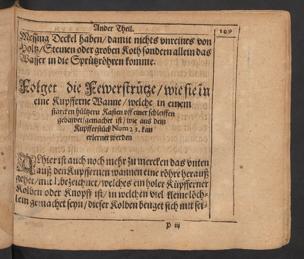 Ander Theil.
Messing Deckel haben/damit nichts vnreines von
Holtz/Steinen oder groben Koth sondern allein das
Wasser in die Sprützröhren komme.
Folget die Fewersprütze/wie sie in
eine Kupfferne Wanne/welche in einem
starcken hültzern Kasten vff einer schleiffen
gebawet/gemachet ist/wie aus dem
Kupfferstück Num 23. kan
ersehen werden
Alhier ist auch noch mehr zu mercken das vnten
auß den Kupffernen wannen eine röhre herauß
gehet/mit l. bezeichnet/welches ein holer Kupfferner
Kolben oder Knopff ist/in welchen viel kleine löch-
lein gemachet seyn/dieser Kolben henget sich mit sei-
P iij